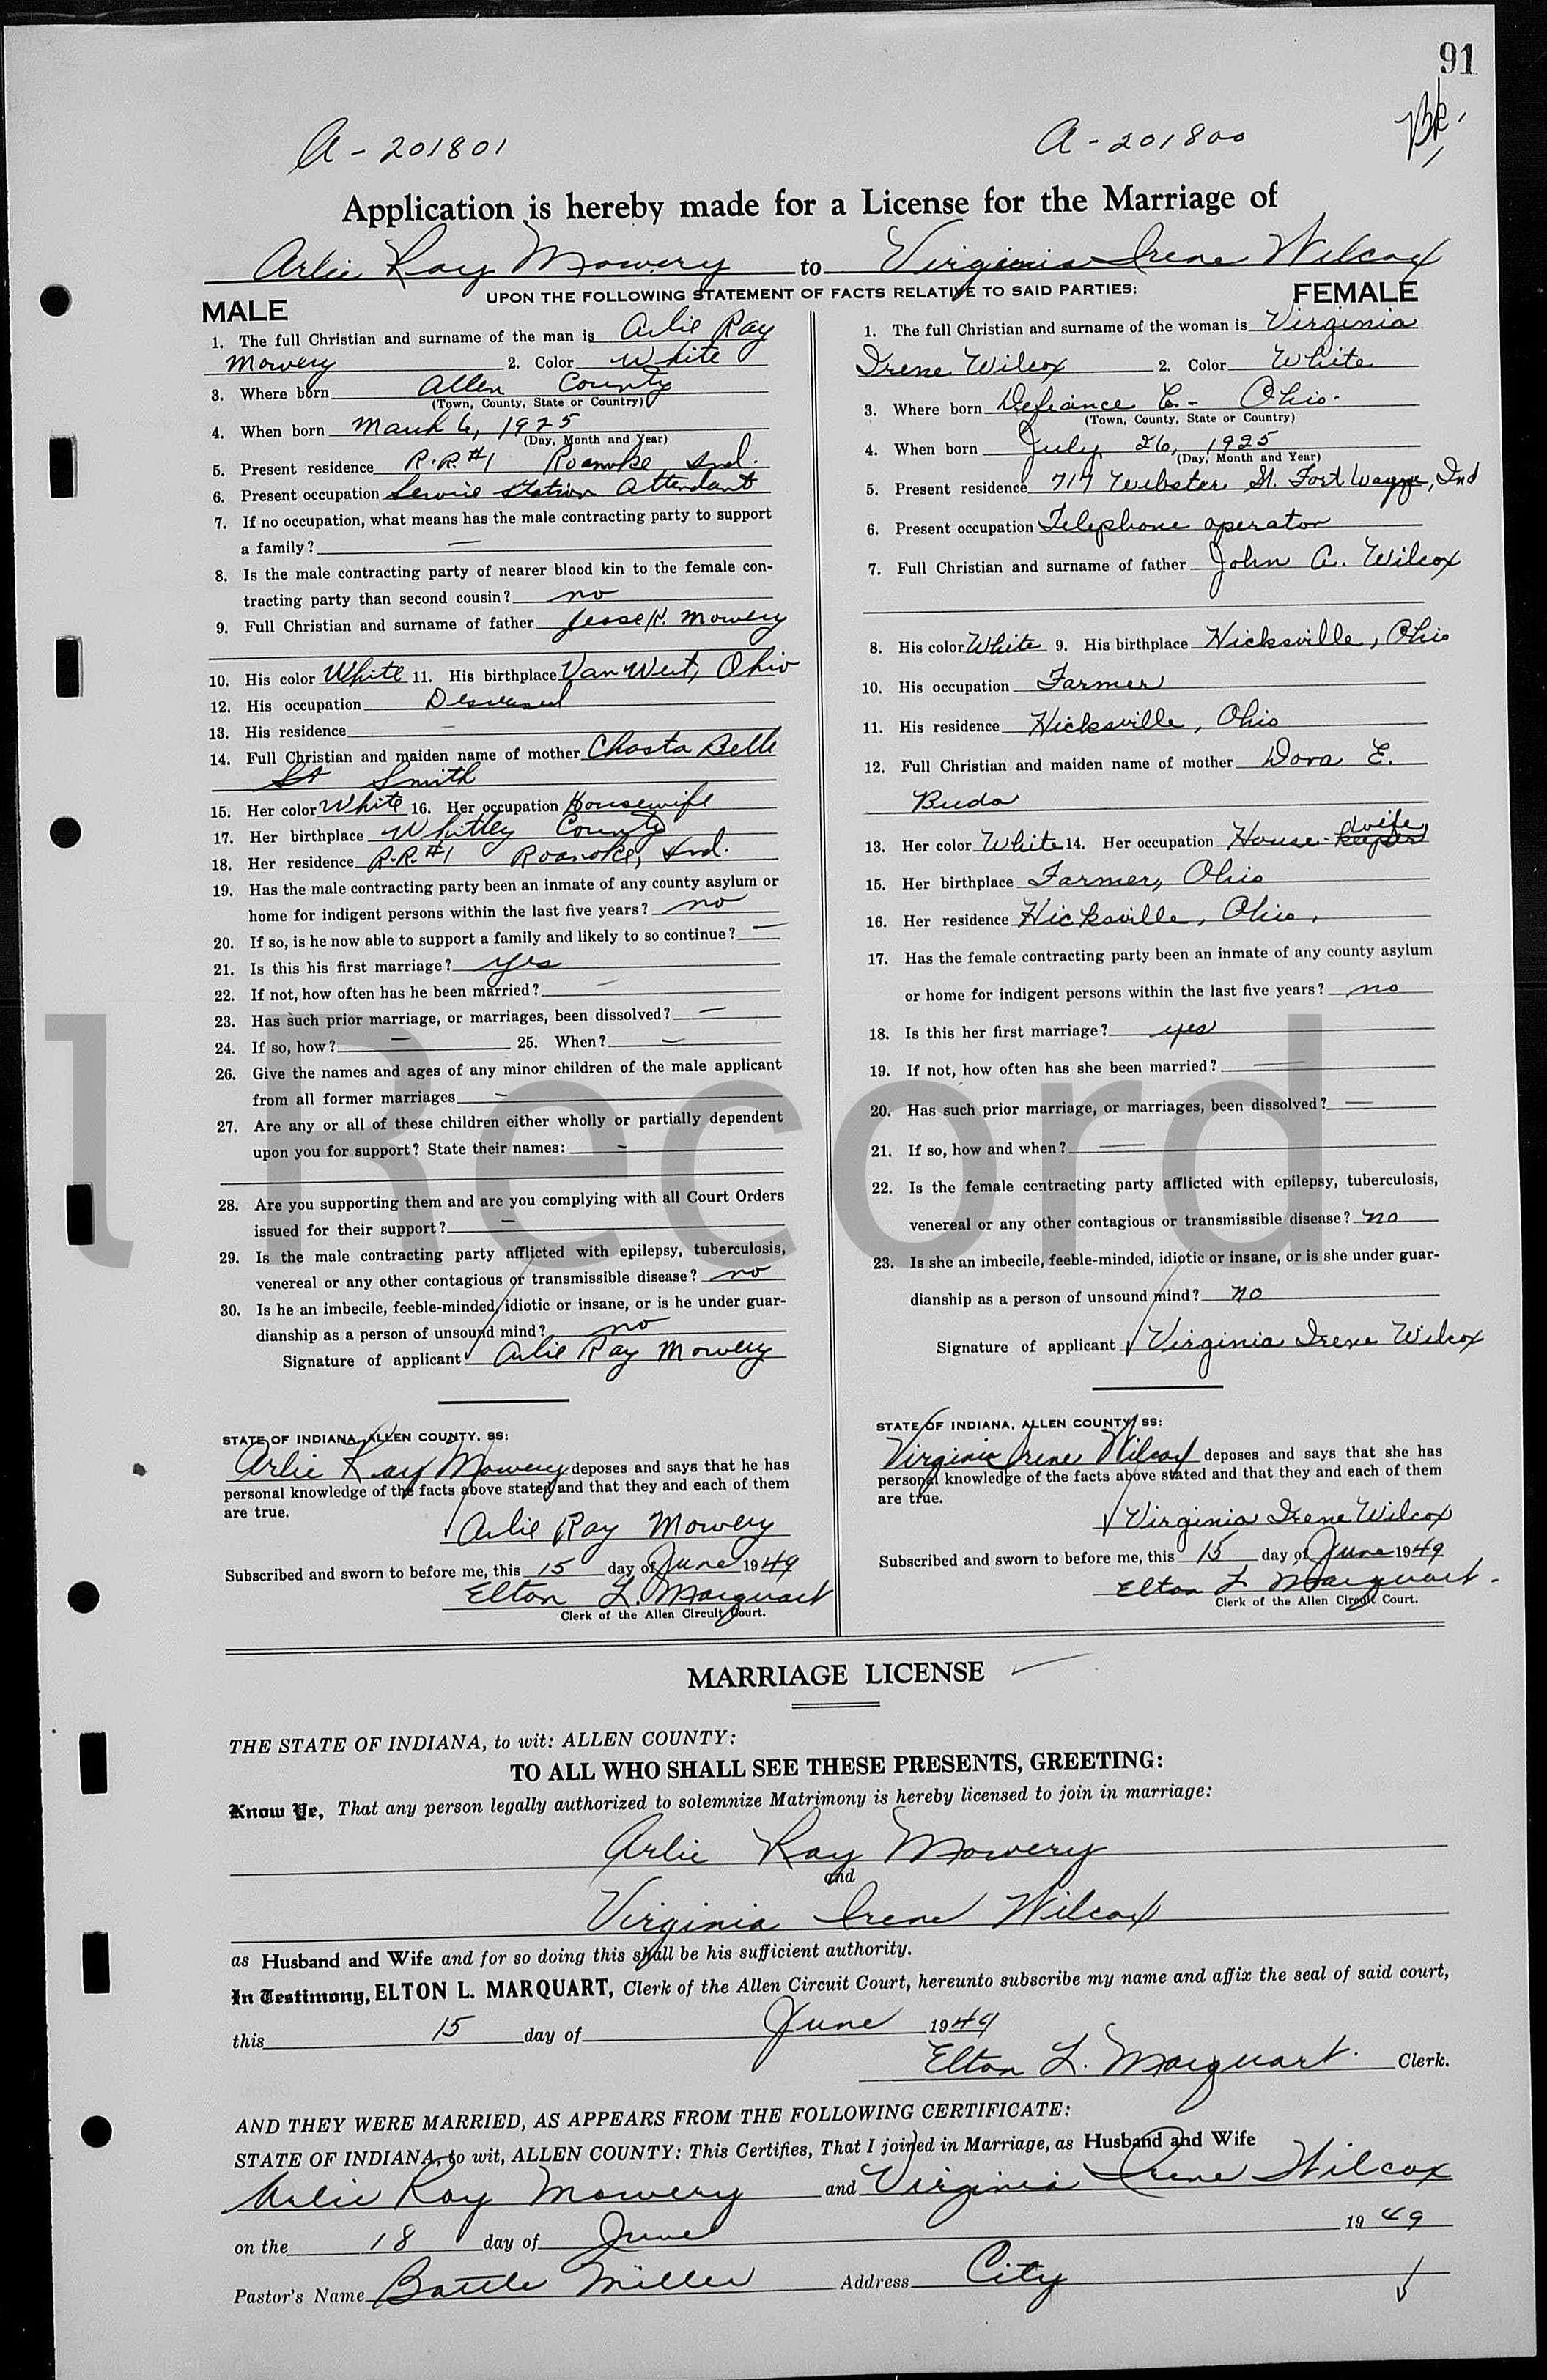 91
Bk.
A-201801
A-201800
Application is hereby made for a License for the Marriage of
Arlie Ray Mowery to Virginia Irene Wilcox
UPON THE FOLLOWING STATEMENT OF FACTS RELATIVE TO SAID PARTIES:
MALE
1. The full Christian and surname of the man is Arlie Ray
Mowery 2. Color White
3. Where born Allen County
(Town, County, State or Country)
4. When born March 6, 1925
(Day, Month and Year)
5. Present residence R.R. #1 Roanoke Ind.
6. Present occupation Service Station Attendant
7. If no occupation, what means has the male contracting party to support
a family? —
8. Is the male contracting party of nearer blood kin to the female con-
tracting party than second cousin? no
9. Full Christian and surname of father Jesse R. Mowery
10. His color White 11. His birthplace Van Wert, Ohio
12. His occupation Deceased
13. His residence —
14. Full Christian and maiden name of mother Chasta Belle
Smith
15. Her color White 16. Her occupation Housewife
17. Her birthplace Whitley County
18. Her residence R.R. #1 Roanoke, Ind.
19. Has the male contracting party been an inmate of any county asylum or
home for indigent persons within the last five years? no
20. If so, is he now able to support a family and likely to so continue? —
21. Is this his first marriage? yes
22. If not, how often has he been married? —
23. Has such prior marriage, or marriages, been dissolved? —
24. If so, how? — 25. When? —
26. Give the names and ages of any minor children of the male applicant
from all former marriages —
27. Are any or all of these children either wholly or partially dependent
upon you for support? State their names: —
28. Are you supporting them and are you complying with all Court Orders
issued for their support? —
29. Is the male contracting party afflicted with epilepsy, tuberculosis,
venereal or any other contagious or transmissible disease? no
30. Is he an imbecile, feeble-minded, idiotic or insane, or is he under guar-
dianship as a person of unsound mind? no
Signature of applicant Arlie Ray Mowery
STATE OF INDIANA, ALLEN COUNTY, SS:
Arlie Ray Mowery deposes and says that he has
personal knowledge of the facts above stated and that they and each of them
are true.
Arlie Ray Mowery
Subscribed and sworn to before me, this 15 day of June 1949
Elton L. Marquart
Clerk of the Allen Circuit Court.
FEMALE
1. The full Christian and surname of the woman is Virginia
Irene Wilcox 2. Color White
3. Where born Defiance Co- Ohio.
(Town, County, State or Country)
4. When born July 26, 1925
(Day, Month and Year)
5. Present residence 717 Webster St. Fort Wayne, Ind
6. Present occupation Telephone operator
7. Full Christian and surname of father John A. Wilcox
8. His color White 9. His birthplace Hicksville, Ohio
10. His occupation Farmer
11. His residence Hicksville, Ohio
12. Full Christian and maiden name of mother Dora E.
Buda
13. Her color White 14. Her occupation House-wife
15. Her birthplace Farmer, Ohio
16. Her residence Hicksville, Ohio,
17. Has the female contracting party been an inmate of any county asylum
or home for indigent persons within the last five years? no
18. Is this her first marriage? yes
19. If not, how often has she been married? —
20. Has such prior marriage, or marriages, been dissolved? —
21. If so, how and when? —
22. Is the female contracting party afflicted with epilepsy, tuberculosis,
venereal or any other contagious or transmissible disease? no
23. Is she an imbecile, feeble-minded, idiotic or insane, or is she under guar-
dianship as a person of unsound mind? no
Signature of applicant Virginia Irene Wilcox
STATE OF INDIANA, ALLEN COUNTY, SS:
Virginia Irene Wilcox deposes and says that she has
personal knowledge of the facts above stated and that they and each of them
are true.
Virginia Irene Wilcox
Subscribed and sworn to before me, this 15 day of June 1949
Elton L. Marquart.
Clerk of the Allen Circuit Court.
l Record
MARRIAGE LICENSE
THE STATE OF INDIANA, to wit: ALLEN COUNTY:
TO ALL WHO SHALL SEE THESE PRESENTS, GREETING:
Know Ye, That any person legally authorized to solemnize Matrimony is hereby licensed to join in marriage:
Arlie Ray Mowery
and
Virginia Irene Wilcox
as Husband and Wife and for so doing this shall be his sufficient authority.
In Testimony, ELTON L. MARQUART, Clerk of the Allen Circuit Court, hereunto subscribe my name and affix the seal of said court,
this 15 day of June 1949
Elton L. Marquart. Clerk.
AND THEY WERE MARRIED, AS APPEARS FROM THE FOLLOWING CERTIFICATE:
STATE OF INDIANA, to wit, ALLEN COUNTY: This Certifies, That I joined in Marriage, as Husband and Wife
Arlie Ray Mowery and Virginia Irene Wilcox
on the 18 day of June 1949
Pastor's Name Battle Miller Address City